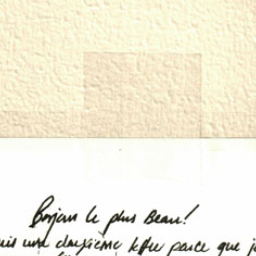 Bonjour le plus Beau!
uis une deuxième lettre parce que j